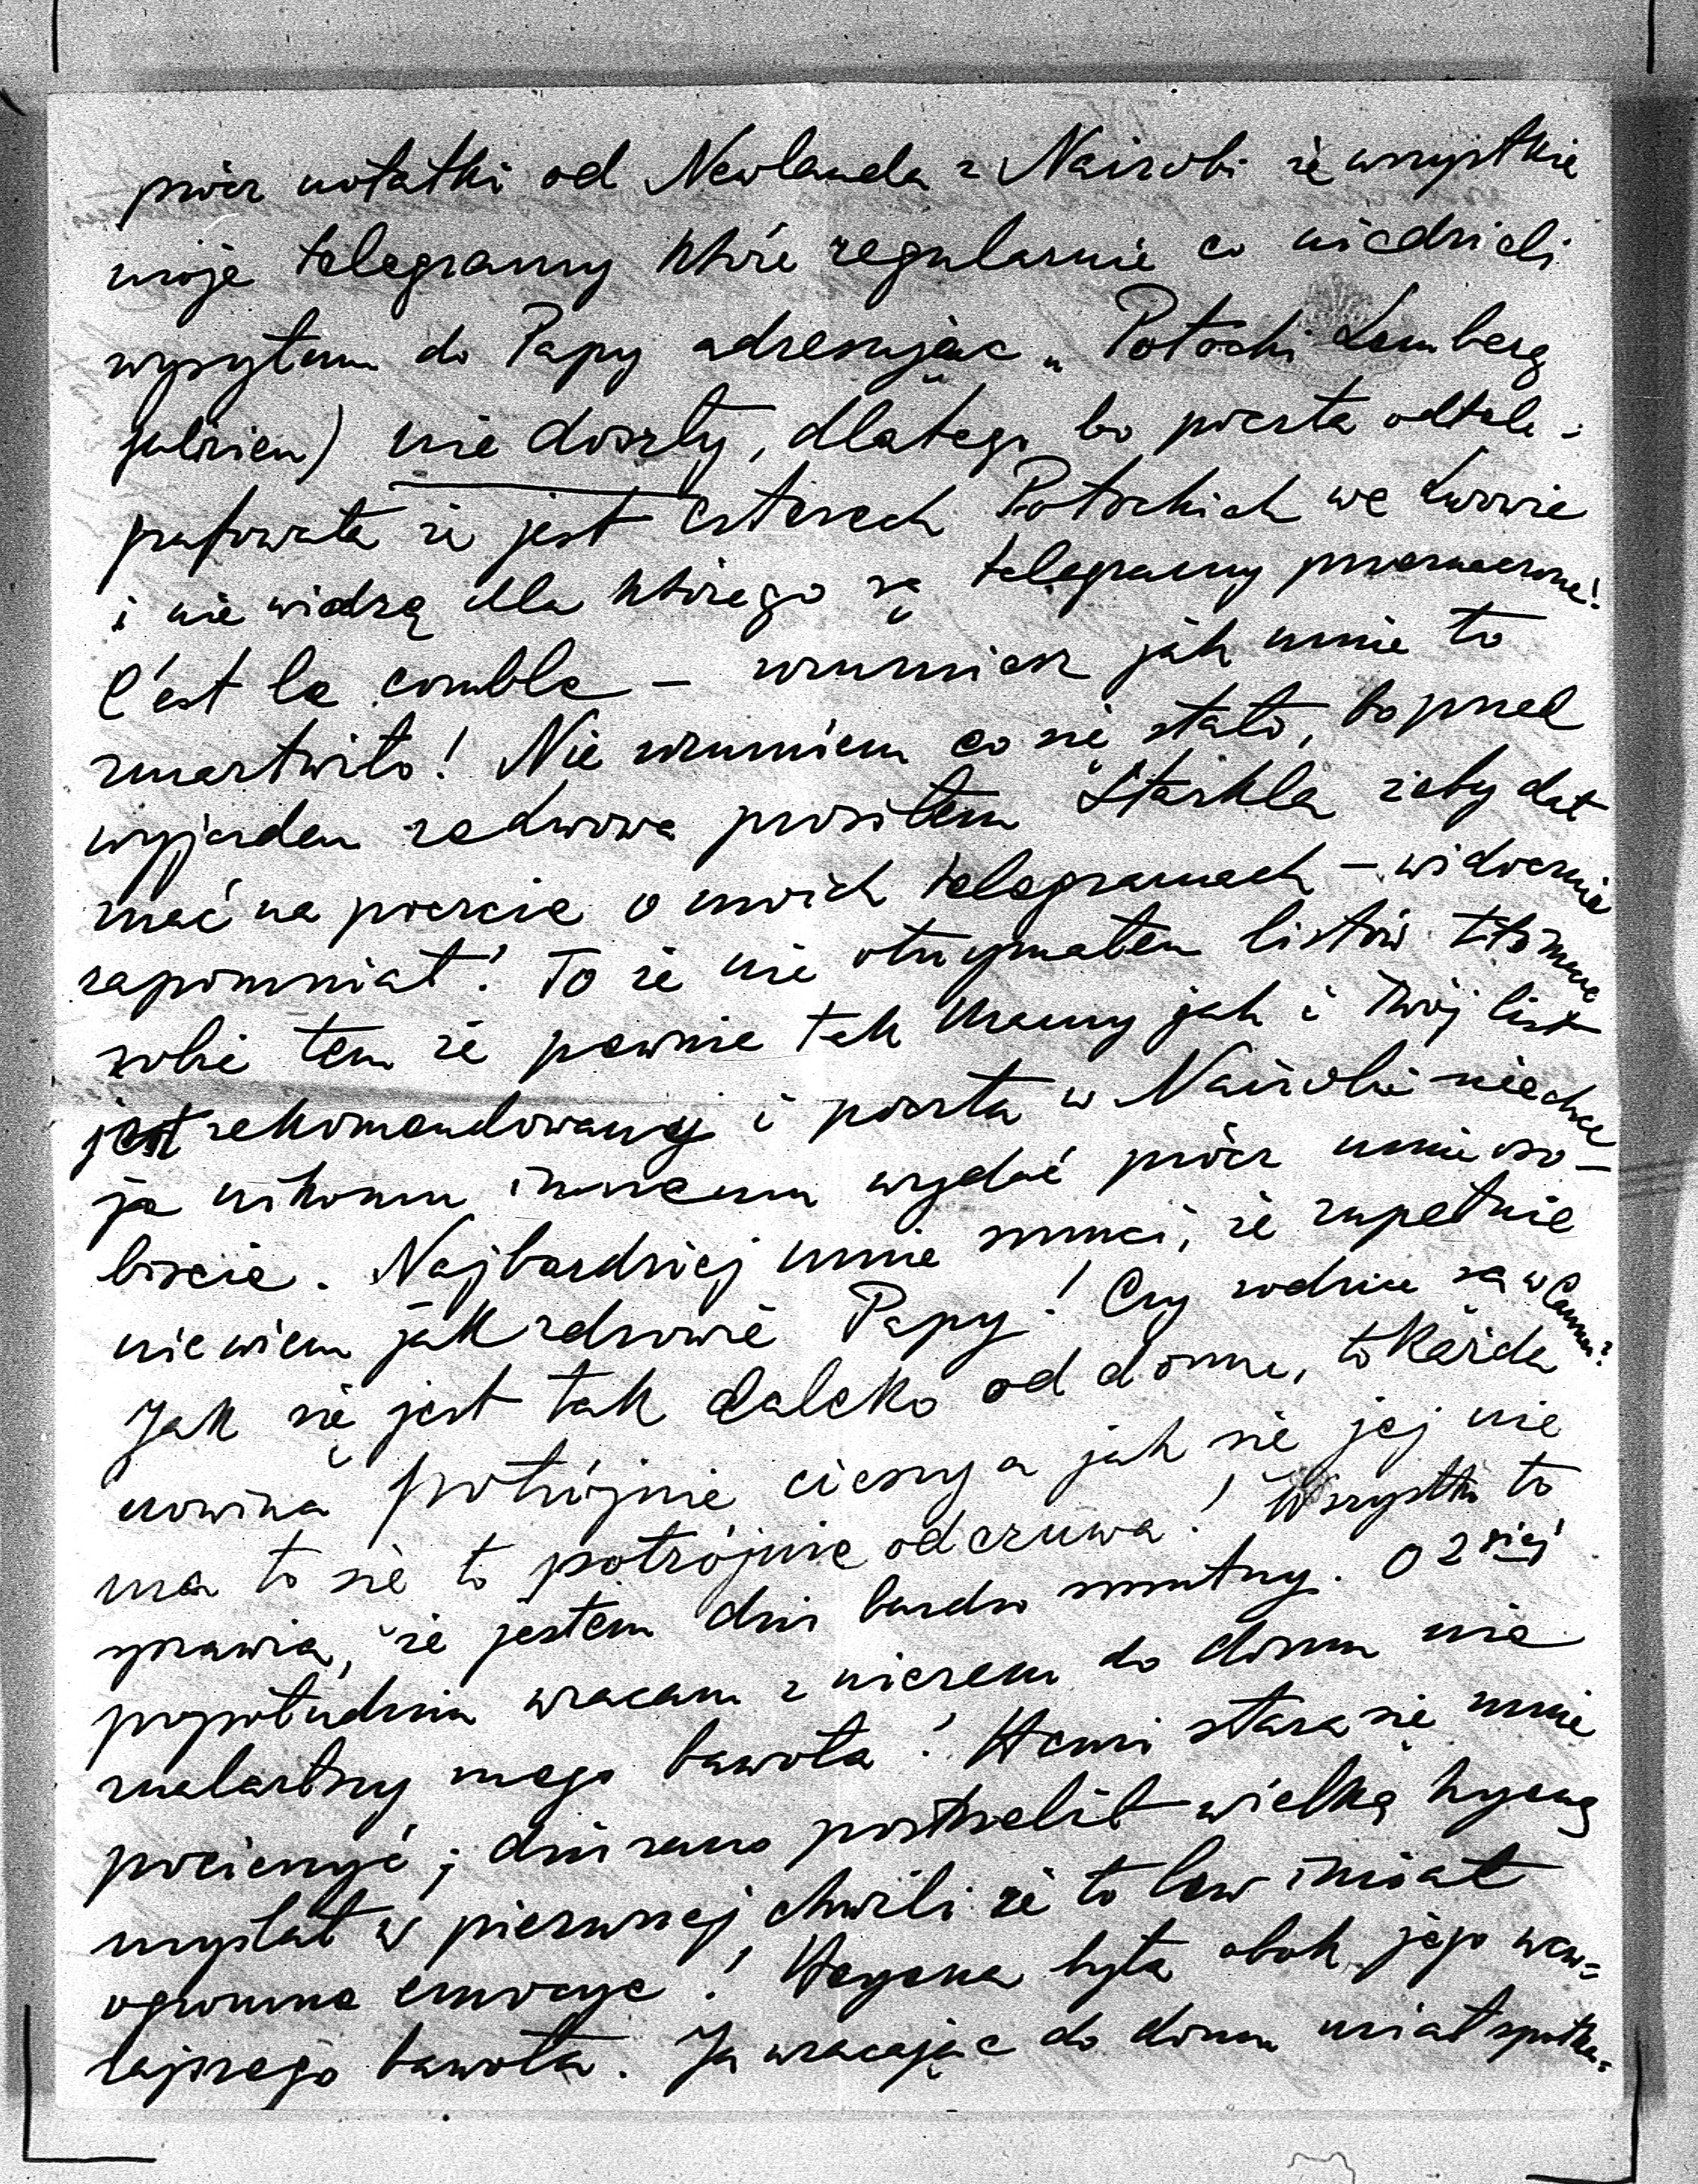 prócz notatki od Newlanda z Nairobi że wszystkie
moje telegramy które regularnie co niedzieli
wysyłam do Papy adresując „Potocki Lemberg
) nie doszły, dlatego bo poczta odtele-
grafowała że jest czterech Potockich we Lwowie
i nie wiedzą dla którego są telegramy przeznaczone!
C'est le comble – rozumiesz jak mnie to
zmartwiło! Nie rozumiem co się stało, bo przed
wyjazdem ze Lwowa prosiłem Stärkla żeby dał
znać na poczcie o moich telegramach – widocznie
zapomniał! To że nie otrzymałem listów tłómaczę
sobie tem że pewnie tak Mamy jak i Twój list
jest rekomendowany i poczta w Nairobi nie chce
ja nikomu innemu wydać prócz mnie oso-
biscie. Najbardziej mnie smuci, że zupełnie
nie wiem jak zdrowie Papy! Czy rodzice są w Cannes?
Jak się jest tak daleko od domu, to każda
nowina potrójnie cieszy a jak się jej nie
ma to się to potrójnie odczuwa! Wszystko to
sprawia, że jestem dziś bardzo smutny. O 2giej
popołudniu wracam z niczem do domu nie
znalazłszy mego bawoła! Henri stara się mnie
pocieszyć; dziś rano postrzelił wielką hyenę
myślał w pierwszej chwili że to lew i miał
ogromne emocye! Hyena była obok jego wczo=
rajszego bawoła. Ja wracając do domu miał spotka=